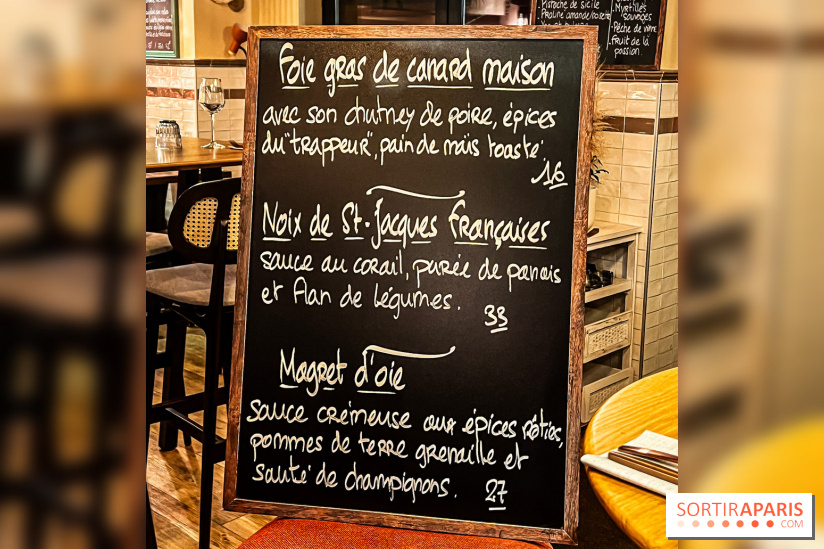 Pistache de sicile
Praline amande/noisette
Myrtilles
sauvages
-Pêche de vigne
.fruit de la
passion.
Foie gras de canard maison
avec son chutney de poire, épices
du "trappeur", pain de maïs toasté.
16
Noix de St-Jacques françaises
sauce au corail, purée de panais
et flan de légumes.
33
Magret d'oie
sauce crémeuse aux épices rôties,
pommes de terre grenaille et
sauté de champignons.
27
SORTIRAPARIS
.COM